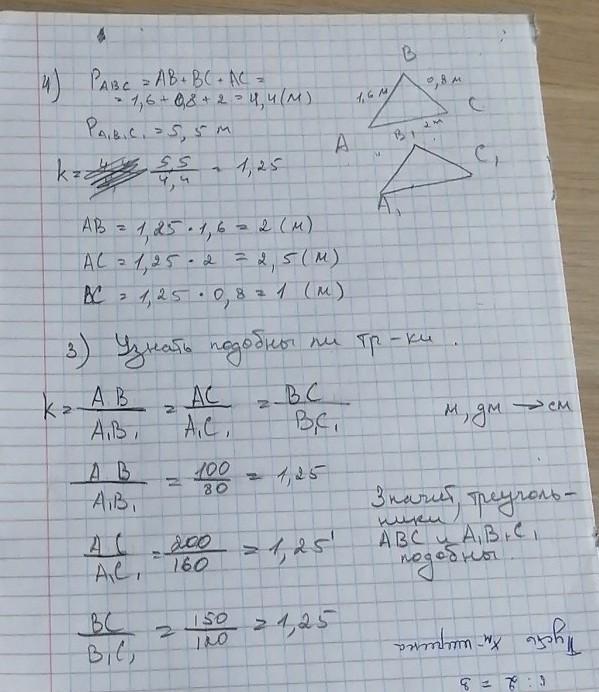 4) P ABC = AB + BC + AC =
= 1,6 + 0,8 + 2 = 4,4 (м)
P A₁B₁C₁ = 5,5 м
k = 5,5 / 4,4 = 1,25
B
1,6 м
0,8 м
C
A
2 м
B₁
C₁
A₁
AB = 1,25 · 1,6 = 2 (м)
AC = 1,25 · 2 = 2,5 (м)
BC = 1,25 · 0,8 = 1 (м)
3) Узнать подобны ли тр-ки.
k = AB / A₁B₁ = AC / A₁C₁ = BC / B₁C₁
м, дм → см
AB / A₁B₁ = 100 / 80 = 1,25
AC / A₁C₁ = 200 / 160 = 1,25
BC / B₁C₁ = 150 / 120 = 1,25
Значит, треуголь-
ники
ABC и A₁B₁C₁
подобны.
Пусть x м - ширина